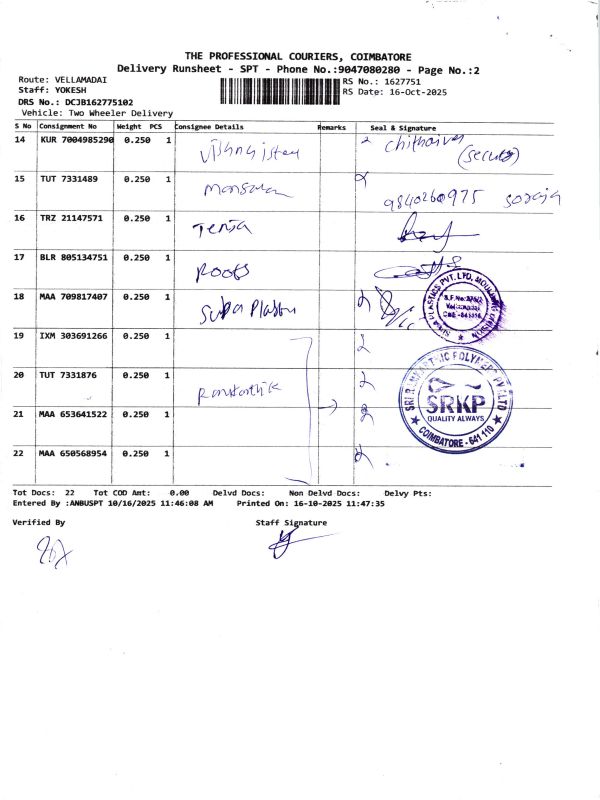 THE PROFESSIONAL COURIERS, COIMBATORE
Delivery Runsheet - SPT - Phone No.:9047080280 - Page No.:2
Route: VELLAMADAI
Staff: YOKESH
DRS No.: DCJB162775102
Vehicle: Two Wheeler Delivery
RS No.: 1627751
RS Date: 16-Oct-2025
S No Consignment No Weight PCS Consignee Details Remarks Seal & Signature
14 KUR 7004985290 0.250 1 (Security)
15 TUT 7331489 0.250 1 9840260975
16 TRZ 21147571 0.250 1
17 BLR 805134751 0.250 1 Roots
18 MAA 709817407 0.250 1 Suba Plastics
SUBA PLASTICS PVT. LTD. MOULDING DIVISION
19 IXM 303691266 0.250 1
20 TUT 7331876 0.250 1 Ramkarthik
SRI RAMKARTHIC POLYMERS PVT LTD
SRKP
QUALITY ALWAYS
COIMBATORE - 641 110
21 MAA 653641522 0.250 1
22 MAA 650568954 0.250 1
Tot Docs: 22 Tot COD Amt: 0.00 Delvd Docs: Non Delvd Docs: Delvy Pts:
Entered By :ANBUSPT 10/16/2025 11:46:08 AM Printed On: 16-10-2025 11:47:35
Verified By Staff Signature